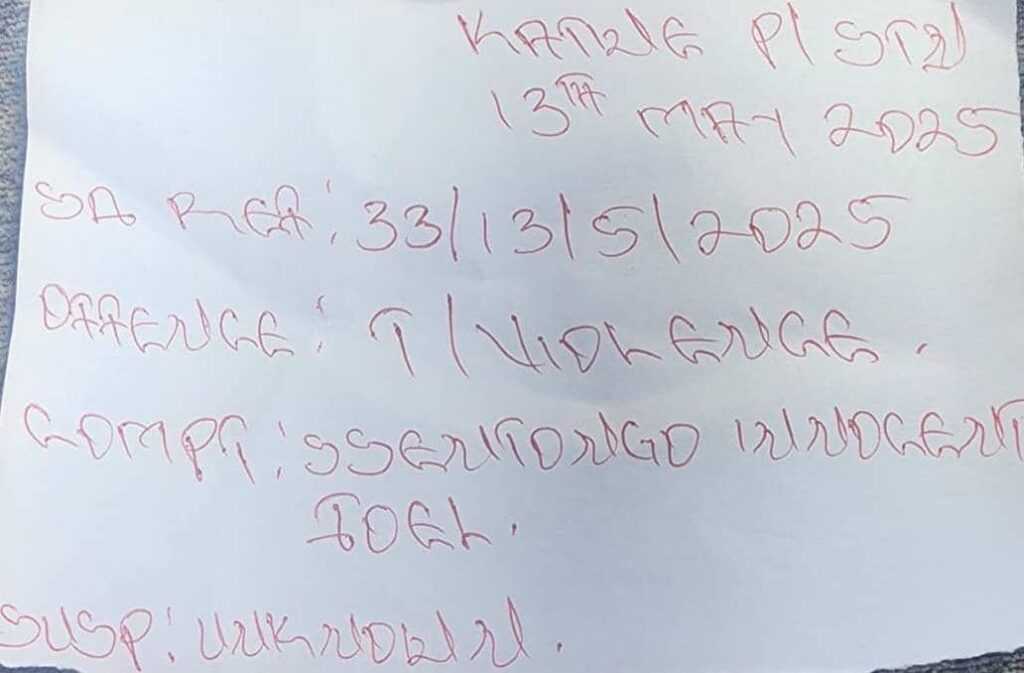 KATWE P/STN
13TH MAY 2025
SD REF: 33/13/5/2025
OFFENCE: T/VIOLENCE.
COMPT: SSENTONGO INNOCENT
JOEL.
SUSP: UNKNOWN.